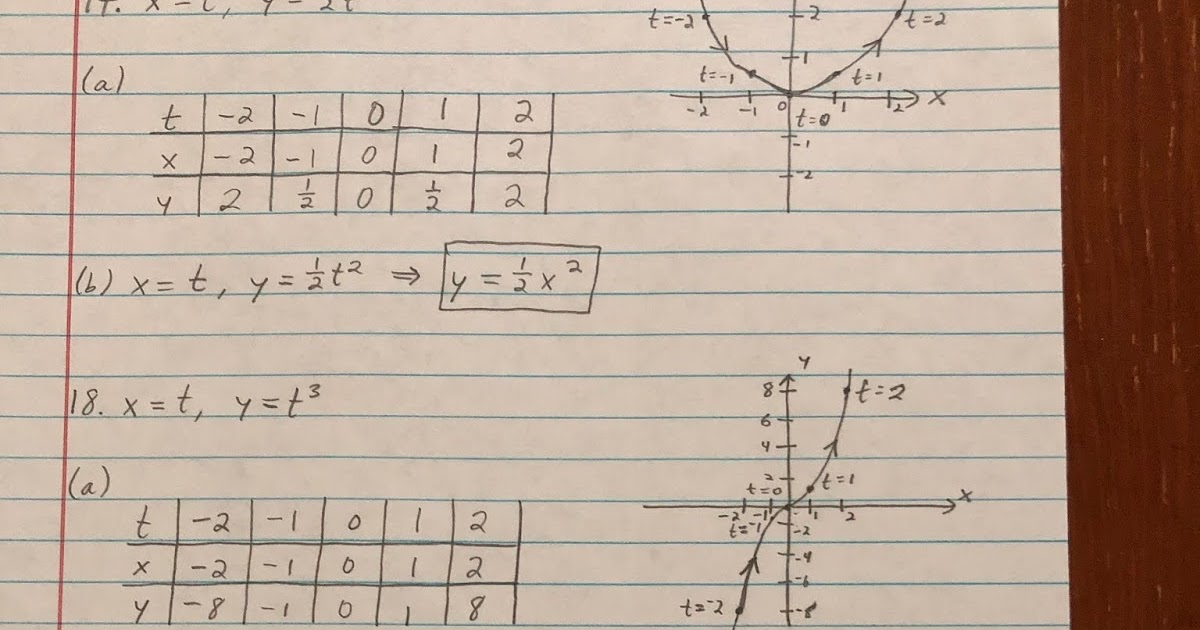 (a)
t -2 -1 0 1 2
x -2 -1 0 1 2
y 2 1/2 0 1/2 2
t=-2 2 t=2
1
t=-1 t=1
-2 -1 0 1 2 x
t=0
-1
-2
(b) x = t, y = ½t² ⇒ y = ½x²
18. x = t, y = t³
y
8 t=2
6
4
2 t=1
t=0
-2 -1 1 2 x
t=-1 -2
-4
-6
t=-2 -8
(a)
t -2 -1 0 1 2
x -2 -1 0 1 2
y -8 -1 0 1 8